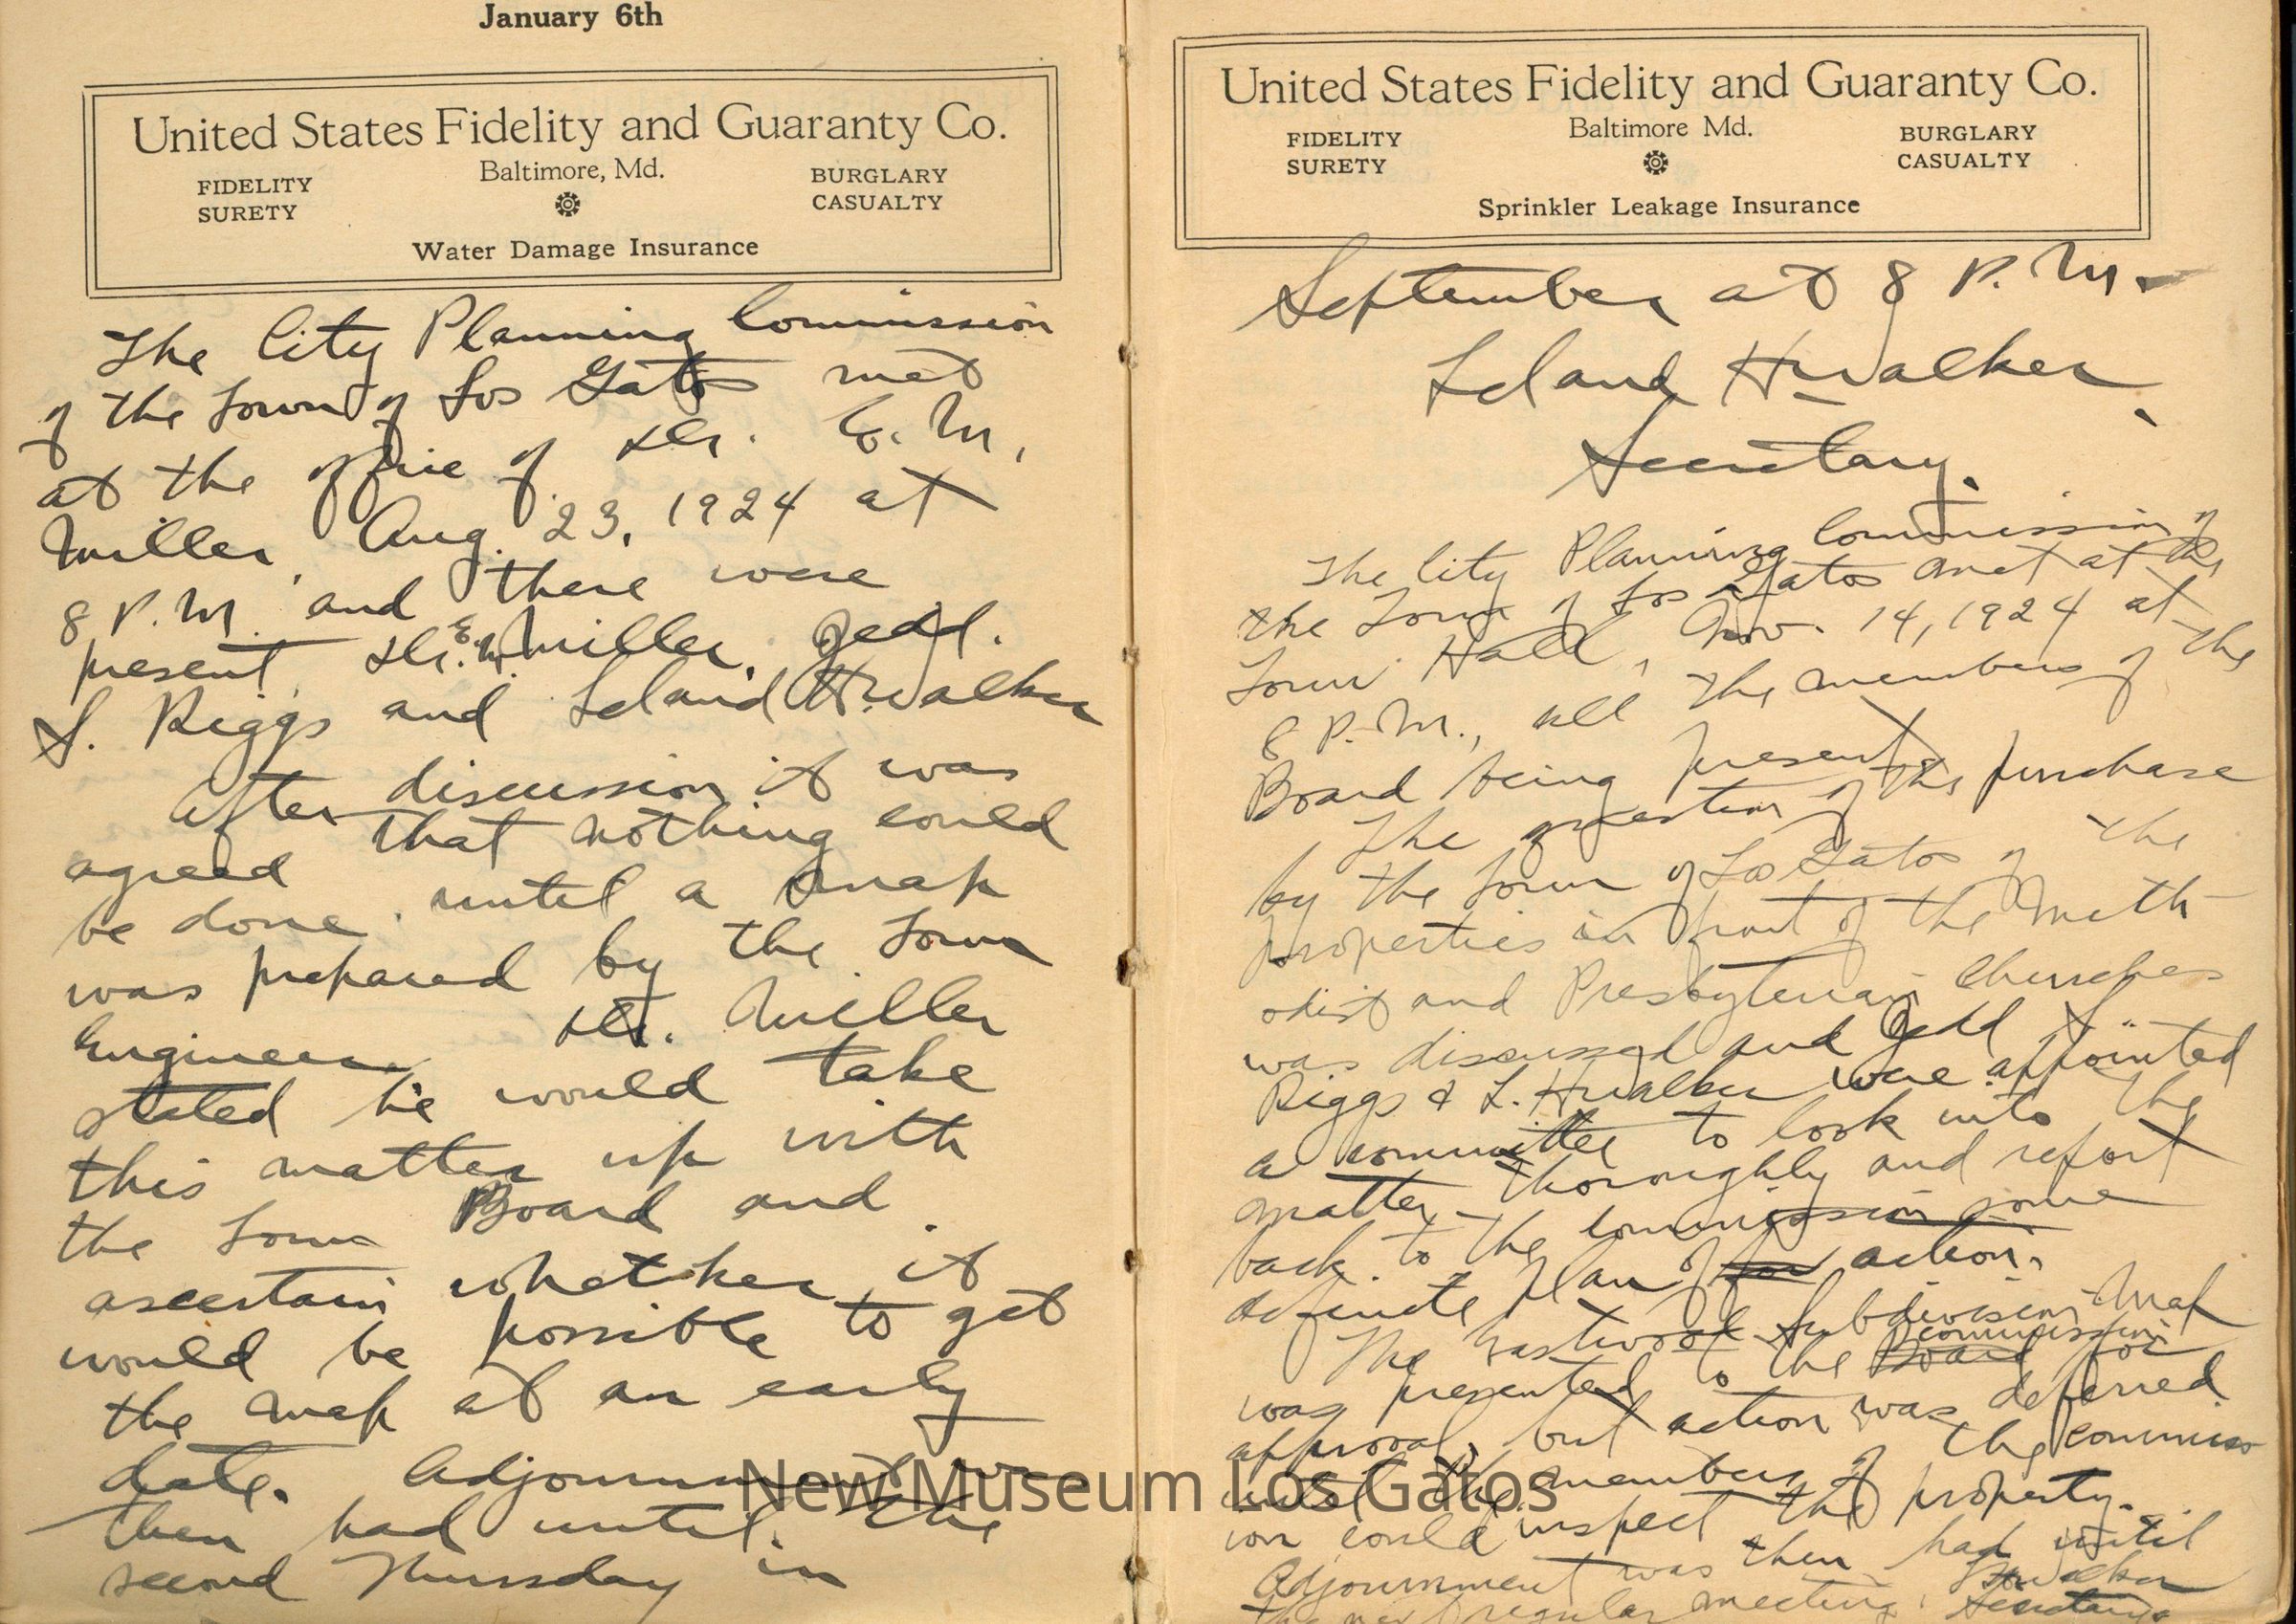 January 6th
United States Fidelity and Guaranty Co.
Baltimore, Md.
FIDELITY
SURETY
BURGLARY
CASUALTY
Water Damage Insurance
The City Planning Commission
of the Town of Los Gatos met
at the office of Dr. E. M.
Miller, Aug. 23, 1924 at
8 P.M. and there were
present Dr. E. M. Miller, Zedd.
S. Riggs and Leland H. Walker
After discussion it was
agreed that nothing could
be done until a map
was prepared by the Town
Engineer. Dr. Miller
stated he would take
this matter up with
the Town Board and
ascertain whether it
would be possible to get
the map at an early
date. Adjournment was
then had until the
second Thursday in
United States Fidelity and Guaranty Co.
Baltimore Md.
FIDELITY
SURETY
BURGLARY
CASUALTY
Sprinkler Leakage Insurance
September at 8 P.M.
Leland H Walker,
Secretary.
The City Planning Commission of
the Town of Los Gatos met at the
Town Hall, Nov. 14, 1924 at
8 P.M., all the members of the
Board being present.
The question of the purchase
by the Town of Los Gatos of the
properties in front of the Meth-
odist and Presbyterian Churches
was discussed and Zedd S.
Riggs & L. H Walker were appointed
a committee to look into the
matter thoroughly and report
back to the commission some
definite plan of for action.
The Eastwood Subdivision Map
was presented to the Board commission for
approval, but action was deferred
until the members of the commiss
ion could inspect the property.
Adjournment was then had until
the next regular meeting. L H Walker
Secretary
New Museum Los Gatos